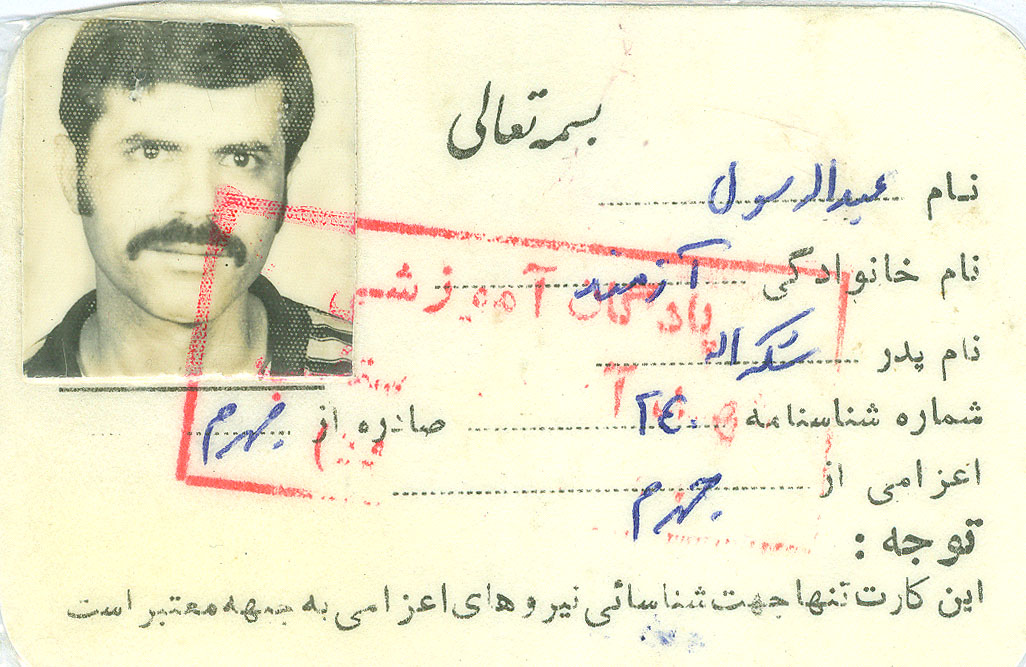 بسمه تعالی
نام عبدالرسول
نام خانوادگی آزمند
نام پدر شکراله
شماره شناسنامه ۲۴۰ صادره از جهرم
اعزامی از جهرم
توجه :
این کارت تنها جهت شناسائی نیروهای اعزامی به جبهه معتبر است
پادگان آموزشی